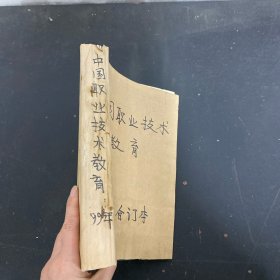 中国职业技术教育
99年
国职业技术
教育
合订本